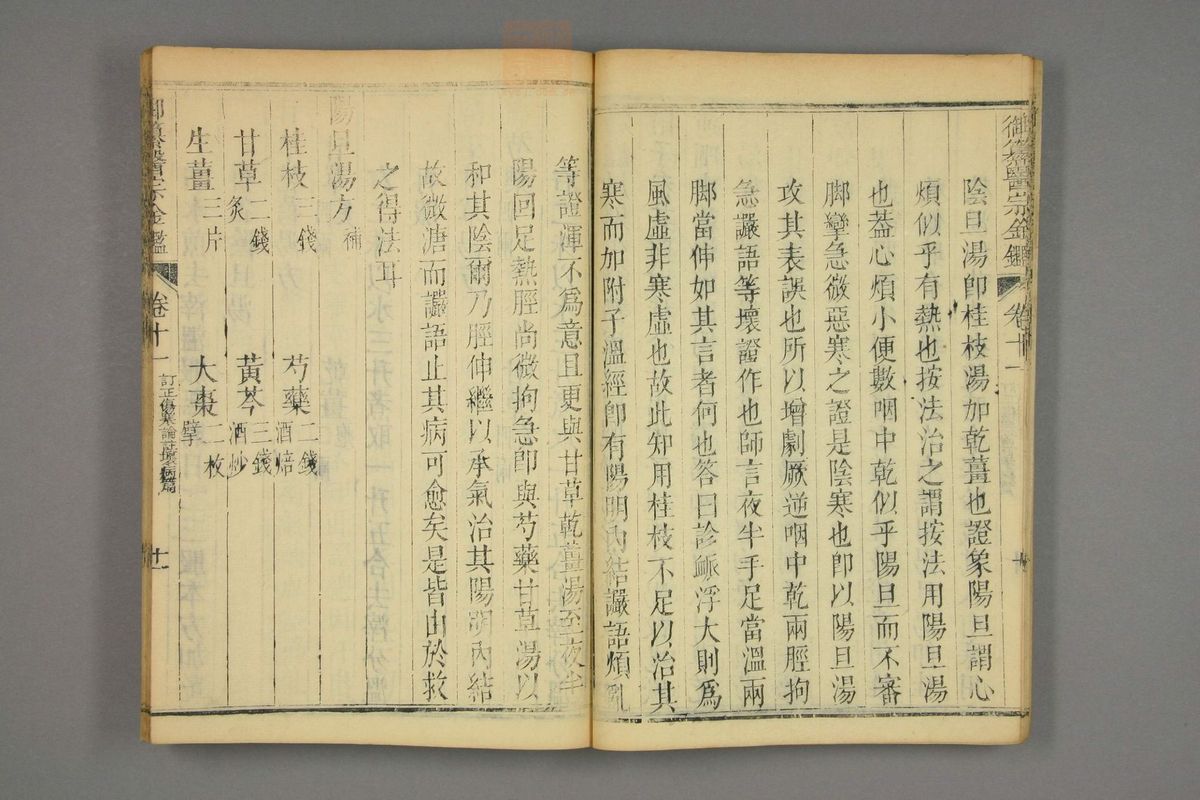 御纂醫宗金鑑 卷十一
陰旦湯即桂枝湯加乾薑也證象陽旦謂心
煩似乎有熱也按法治之謂按法用陽旦湯
也蓋心煩小便數咽中乾似乎陽旦而不審
脚攣急微惡寒之證是陰寒也即以陽旦湯
攻其表誤也所以增劇厥逆咽中乾兩脛拘
急讝語等壞證作也師言夜半手足當溫兩
脚當伸如其言者何也答曰診脈浮大則爲
風虛非寒虛也故此知用桂枝不足以治其
寒而加附子溫經即有陽明內結讝語煩亂
等證渾不爲意且更與甘草乾薑湯至夜半
陽回足熱脛尚微拘急即與芍藥甘草湯以
和其陰爾乃脛伸繼以承氣治其陽明內結
故微溏而讝語止其病可愈矣是皆由於救
之得法耳
陽旦湯方 補
桂枝 三錢 芍藥 二錢酒焙
甘草 二錢炙 黃芩 三錢酒炒
生薑 三片 大棗 二枚擘
御纂醫宗金鑑 卷十一 訂正傷寒論註壞病篇 十一